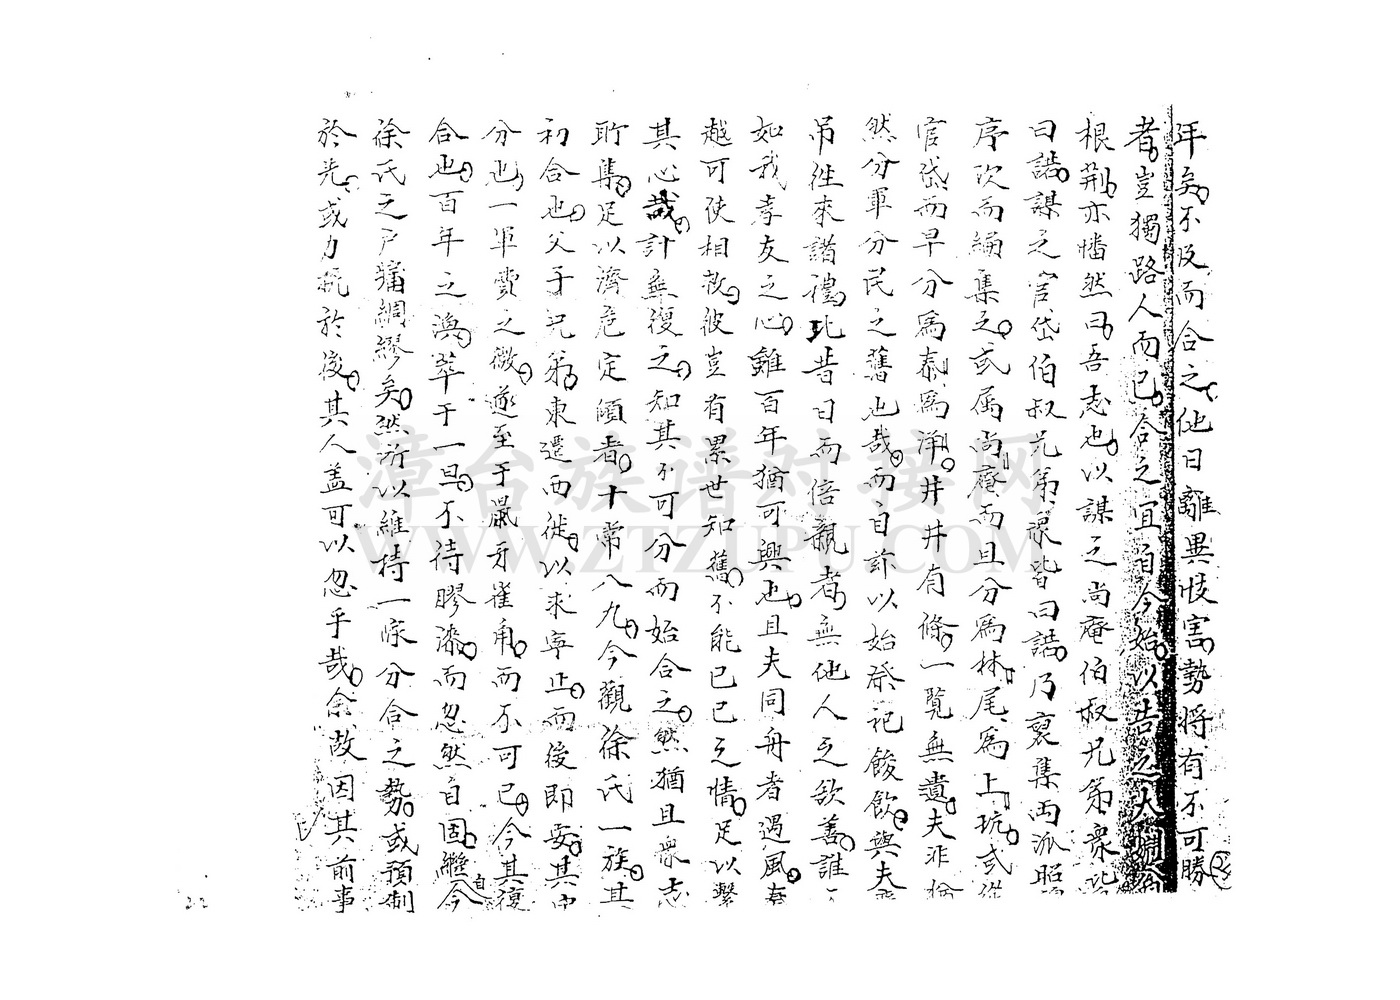 年矣不及而合之他日離異忮害勢將有不可勝
者豈獨路人而已合之宜自今始以告之大
根荆亦幡然曰吾志也以謀之尚庵伯叔兄弟衆皆
曰諾謀之官岱伯叔兄弟衆皆曰諾乃裒集两派昭
序次而編集之或属尚庵而且分爲林尾爲上坑或從
官岱而早分爲泰爲洋井井有條一覧無遺夫非猶
然分軍分民之舊也哉而自诈以始祭祀餕飲與夫
吊徃來諸禮比昔日而倍親者無他人之欲善誰
如我孝友之心雖百年猶可興也且夫同舟者遇風
越可使相救彼豈有累世知舊不能已已之情足以繫
其心哉計無復之知其不可分而始合之然猶且衆志
所集足以濟危定傾者十常八九今觀徐氏一族其
初合也父子兄弟東遷西徙以求寧止而後即安其
分也一軍費之微遂至于鼠牙雀角而不可已今其復
合也百年之渙萃于一旦不待膠漆而忽然自固繼自今
徐氏之户牖綢繆矣然所以維持一家分合之勢或預制
於先或力挽於後其人盖可以忽乎哉余故因其前事
22
漳台族谱对接网
WWW.ZTZUPU.COM